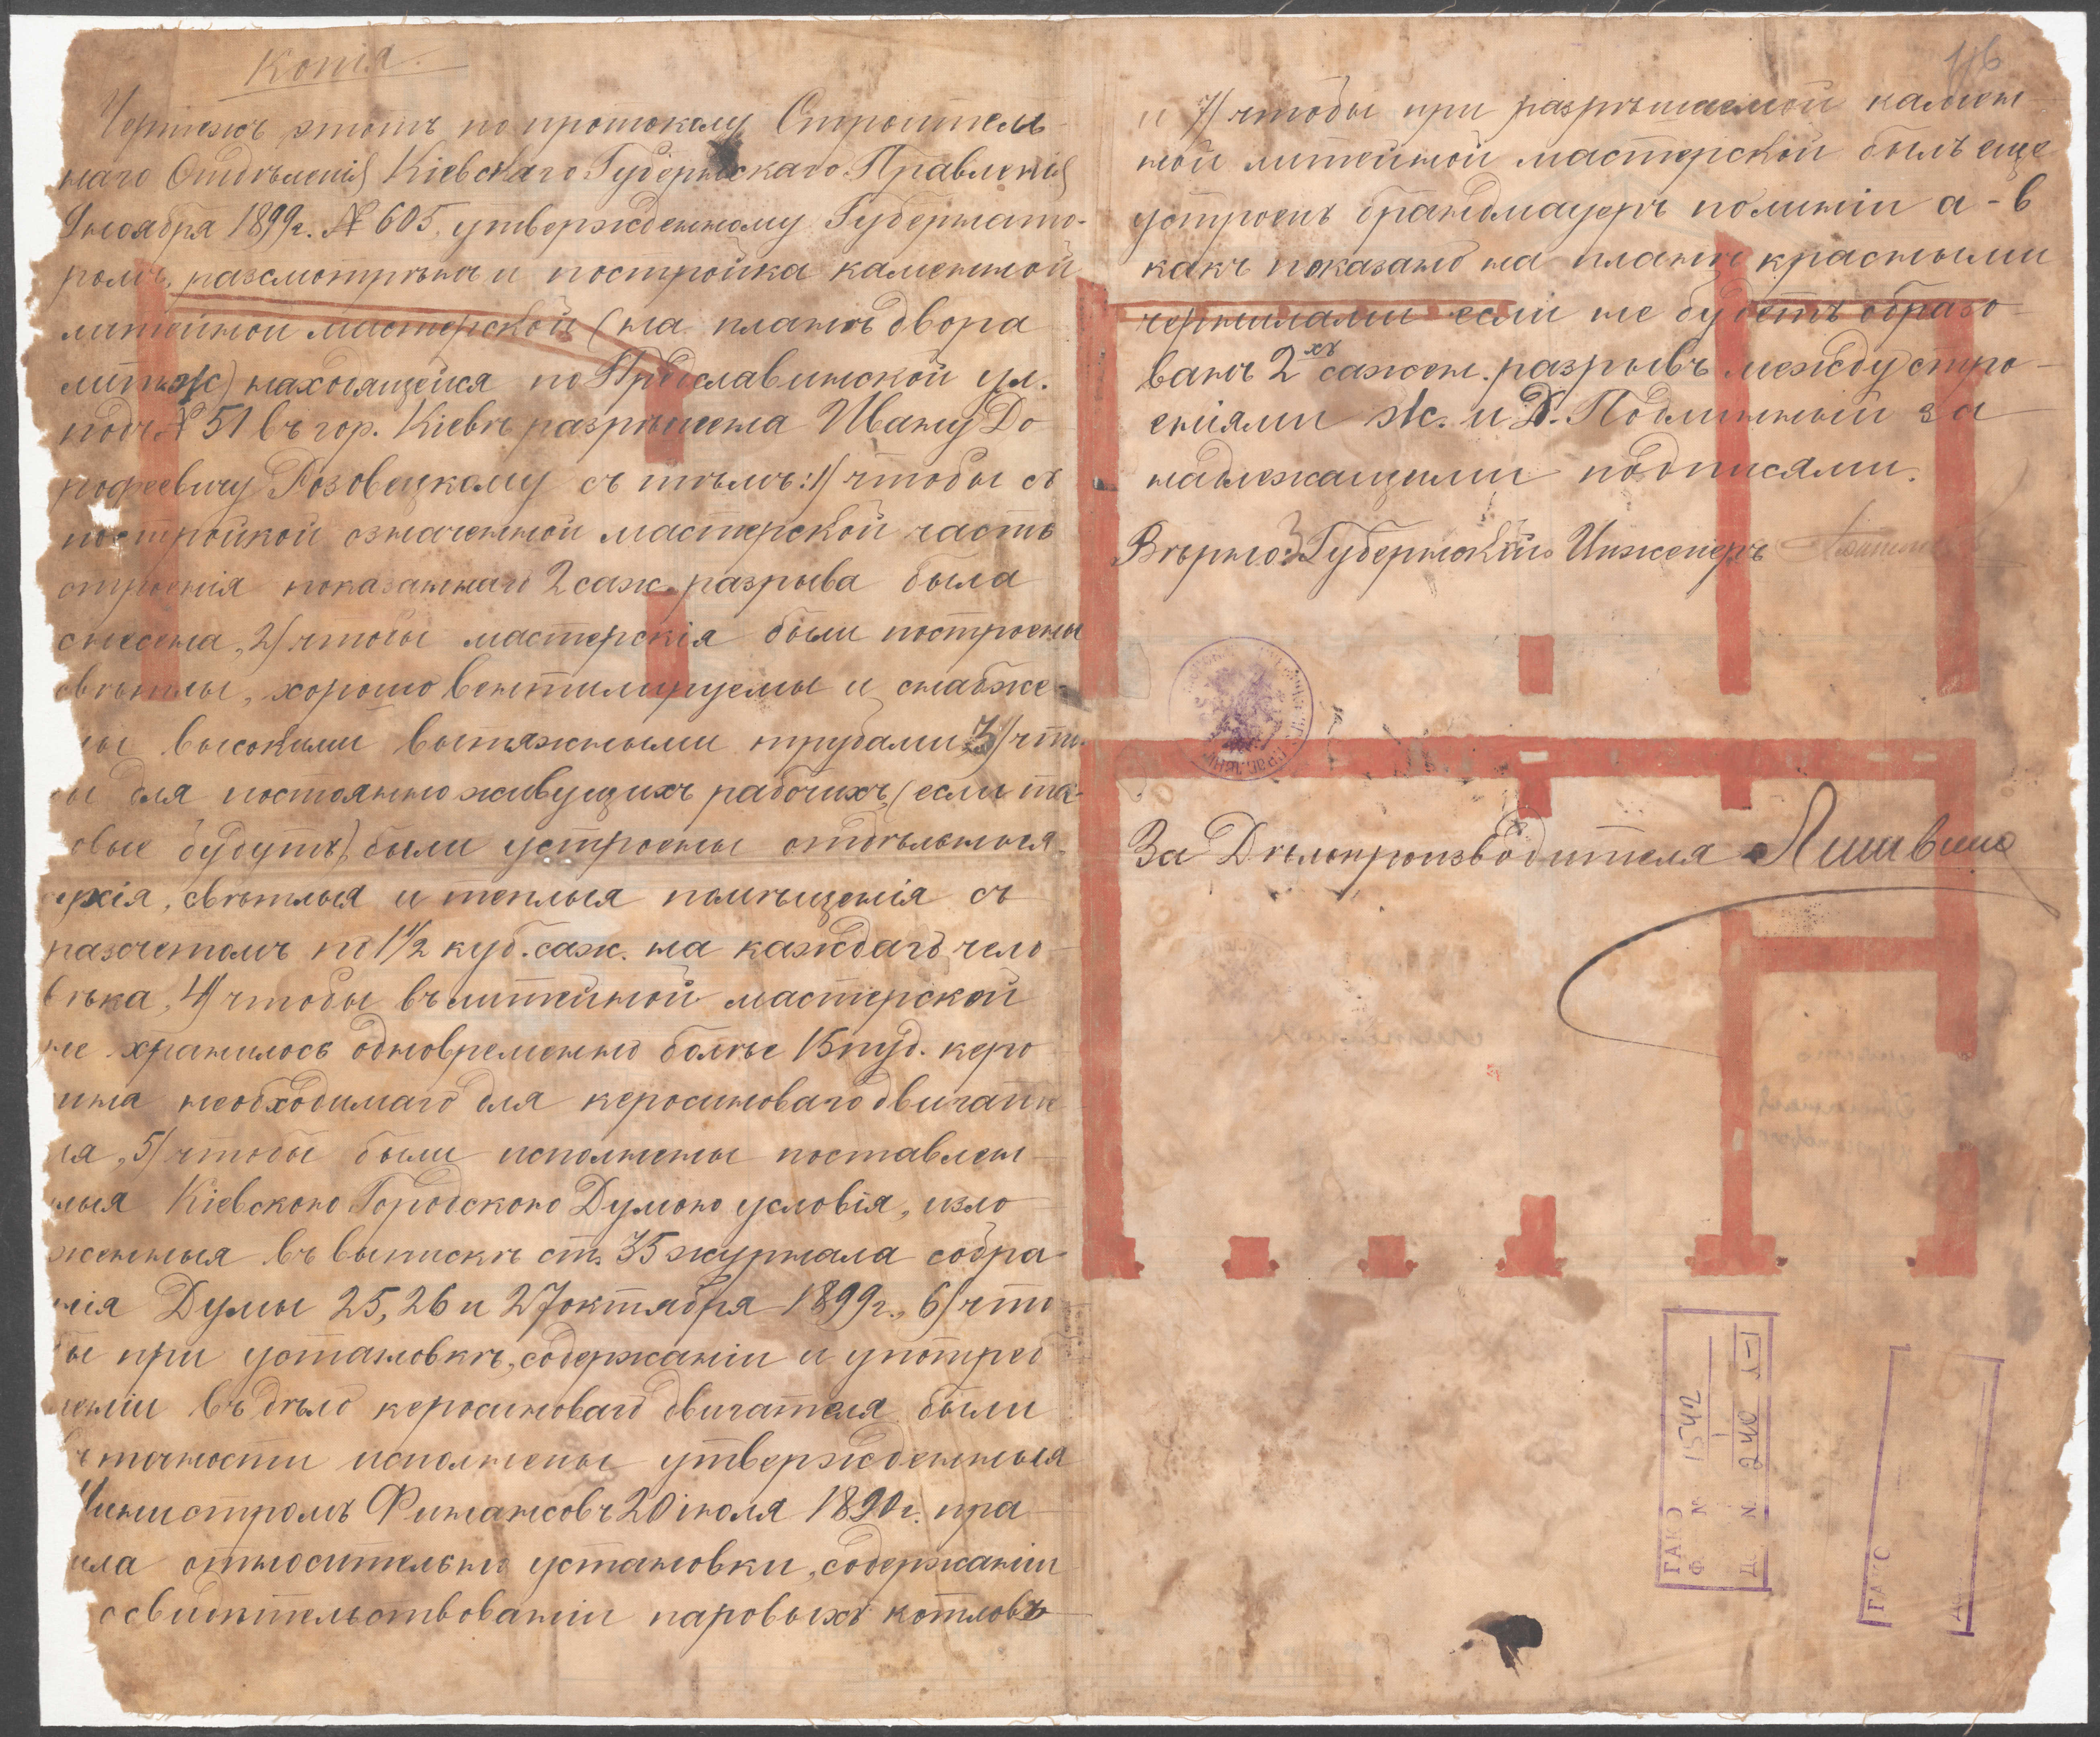 Копія.
Чертежъ этотъ по протоколу Строитель-
наго Отдѣленія Кіевскаго Губернскаго Правленія
ноября 1899г. № 605, утвержденному Губернато-
ромъ, разсмотрѣнъ и постройка каменной
литейной мастерской (на планѣ двора
лит. Ж) находящейся по Предславинской ул.
подъ № 51 въ гор. Кіевѣ разрѣшена Ивану До
рофеевичу Розовецкому съ тѣмъ: 1/ чтобы съ
постройкой означенной мастерской часть
строенія показаннаго 2 саж. разрыва была
снесена, 2/ чтобы мастерскія были построены
свѣтлы, хорошо вентилируемы и снабже-
ны высокими вытяжными трубами 3/ что
ы для постоянно живущихъ рабочихъ, (если та-
овые будутъ), были устроены отдѣльныя
сухія, свѣтлыя и теплыя помѣщенія съ
разсчетомъ по 1 1/2 куб. саж. на каждаго чело-
вѣка, 4/ чтобы въ литейной мастерской
не хранилось одновременно болѣе 15 пуд. керо
ина необходимаго для керосиноваго двигате
ля, 5/ чтобы были исполнены поставлен-
ныя Кіевскою Городскою Думою условія, изло
женныя въ выпискѣ ст. 35 журнала собра-
нія Думы 25, 26 и 27 октября 1899г., 6/ что
бы при установкѣ, содержаніи и употреб
леніи въ дѣло керосиноваго двигателя были
въ точности исполнены утвержденныя
Министромъ Финансовъ 20 іюля 1890г. пра-
ила относительно установки, содержаніи
освидѣтельствованіи паровыхъ котловъ
116
и 7/ чтобы при разрѣшаемой камен
ной литейной мастерской былъ еще
устроенъ брандмауеръ по линіи а-в
какъ показано на планѣ красными
чернилами если не будетъ образо-
ванъ 2хъ сажен. разрывъ между стро-
еніями Ж. и Д. Подлинный за
надлежащими подписями.
Вѣрно: Губернскій Инженеръ
За Дѣлопроизводителя
ГАКО
Ф № 1542
1
Д № 240 л-1
ГАКО